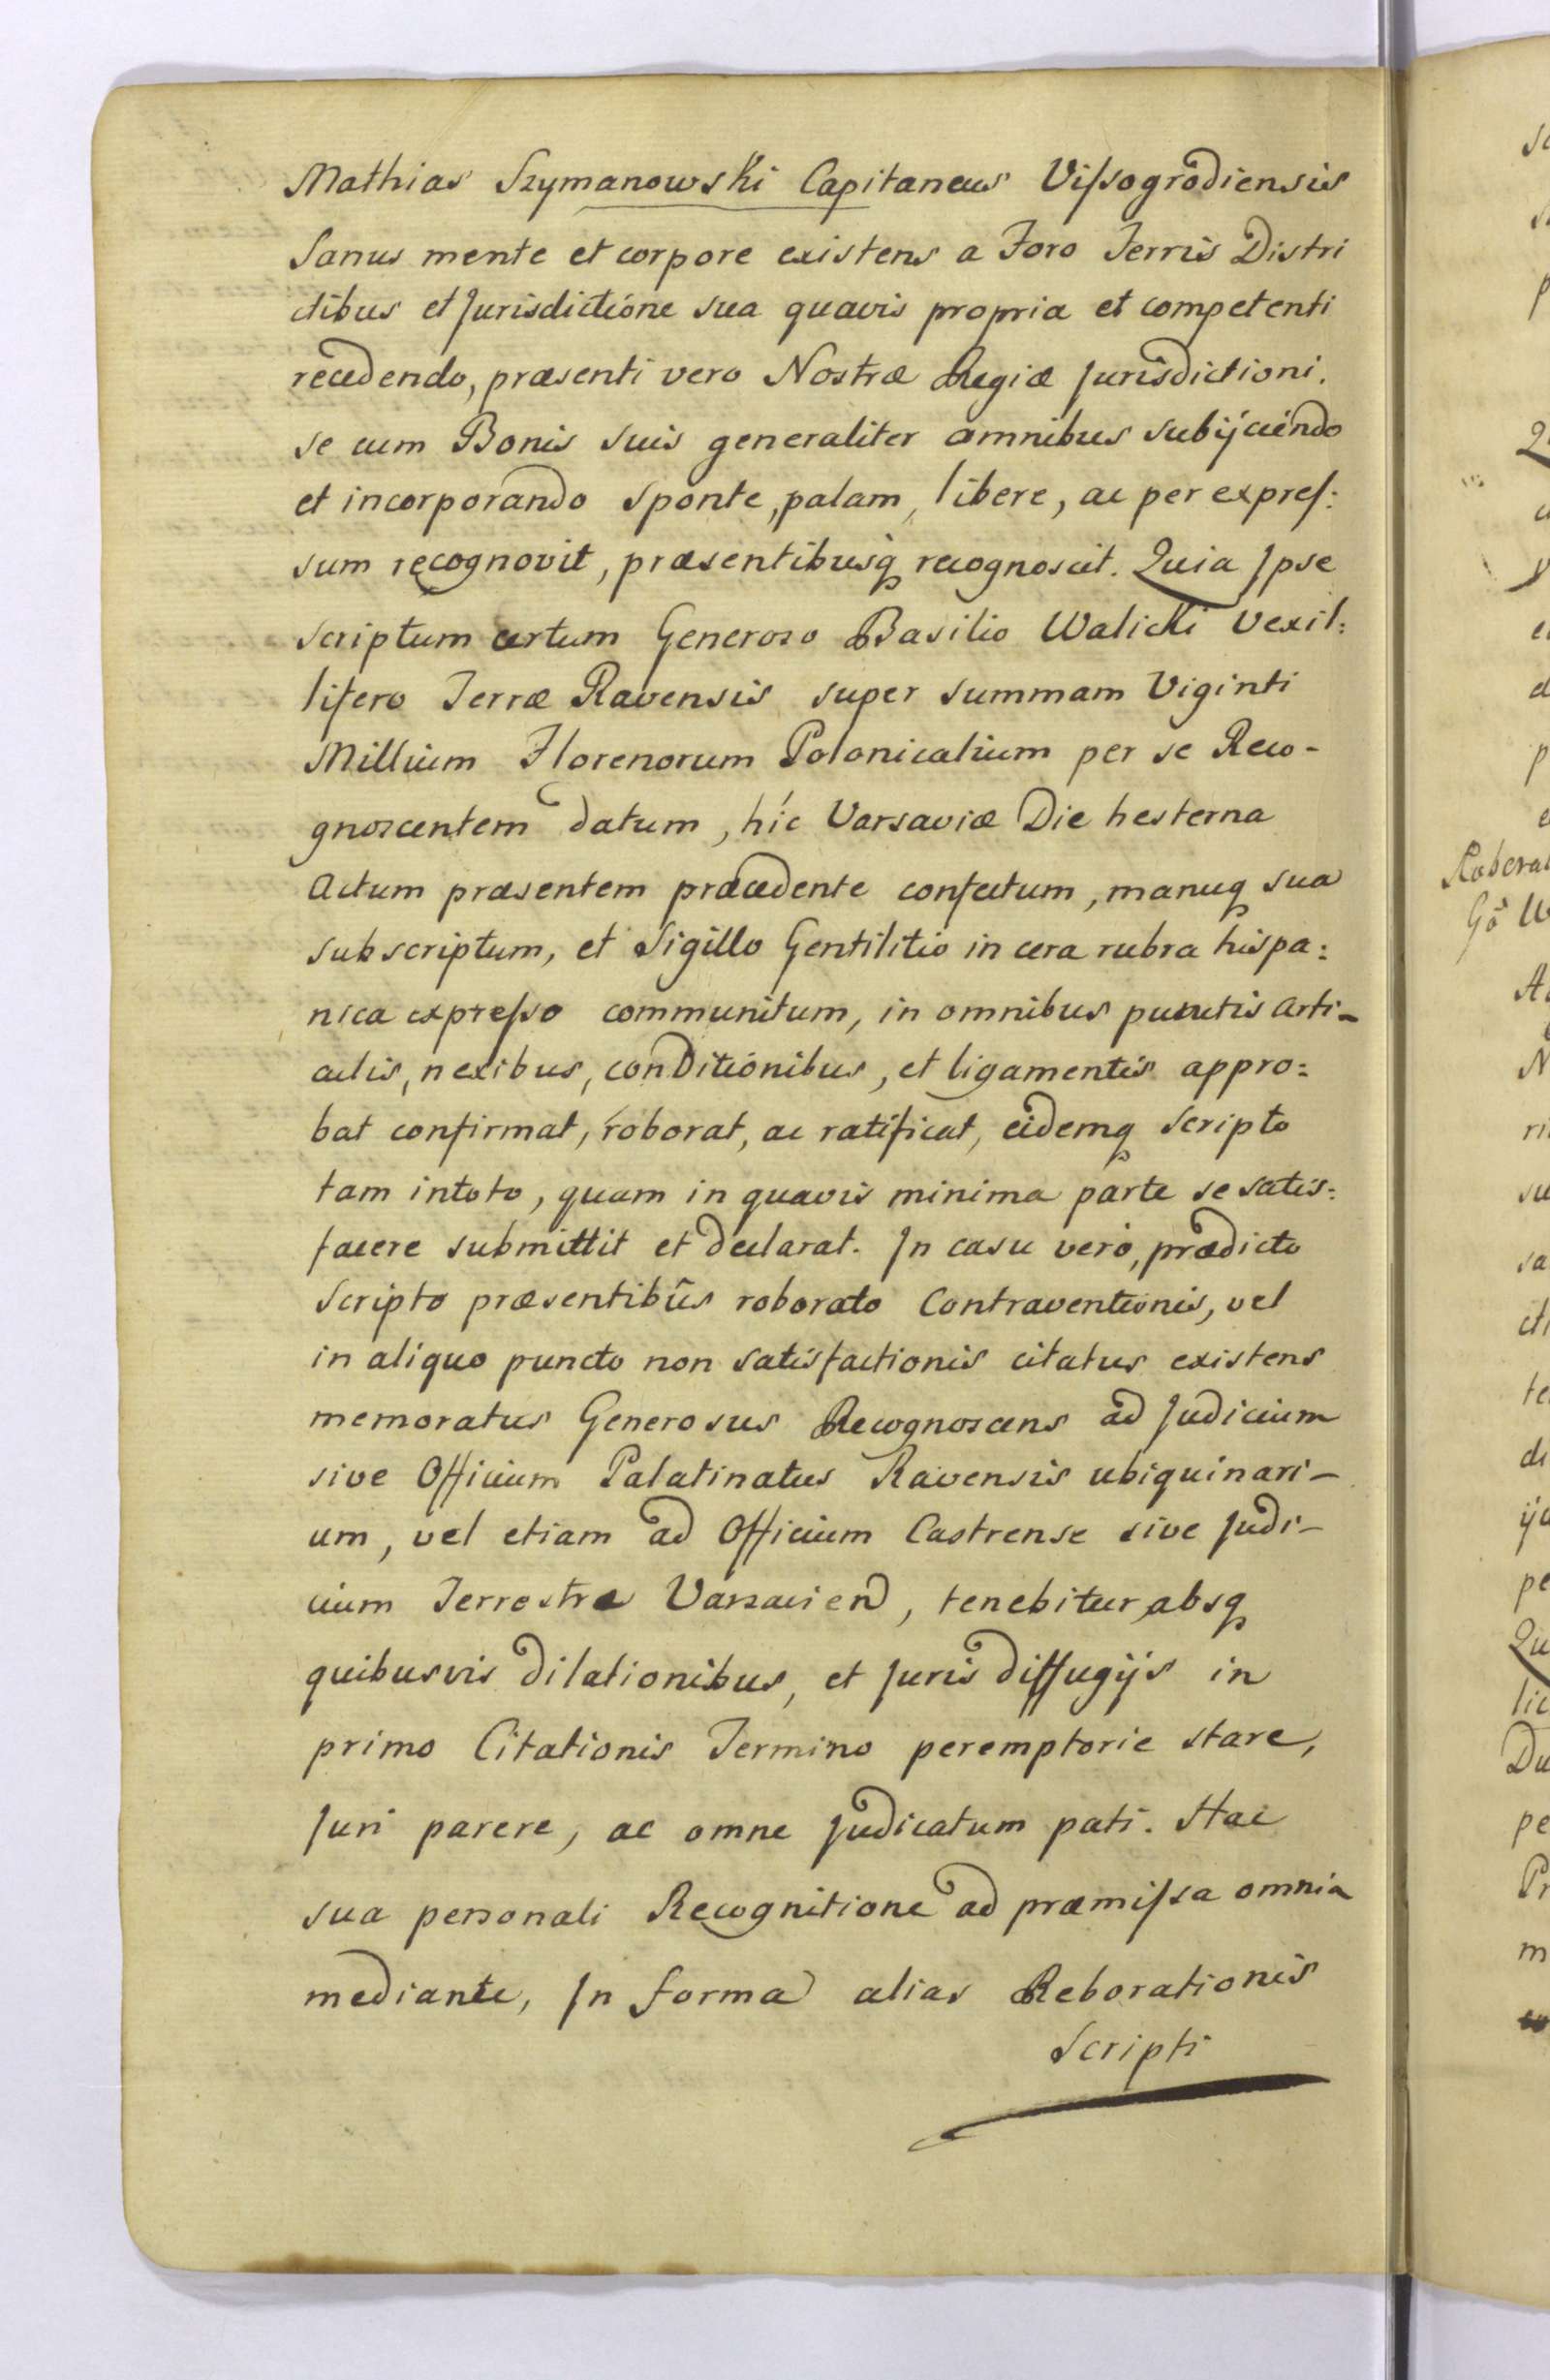 Mathias Szymanowski Capitaneus Vissogrodiensis
Sanus mente et corpore existens a Foro Terris Distri
ctibus et Jurisdictione sua quavis propria et competenti
recedendo, præsenti vero Nostræ Regiæ Jurisdictioni.
se cum Bonis suis generaliter omnibus subijciendo
et incorporando sponte, palam, libere, ac per expres:
sum recognovit, præsentibusq recognoscit. Quia Ipse
scriptum certum Generoso Basilio Walicki Vexil:
lifero Terræ Ravensis super summam Viginti
Millium Florenorum Polonicalium per se Reco-
gnoscentem datum, hic Varsaviæ Die hesterna
Actum præsentem præcedente confectum, manuq sua
subscriptum, et Sigillo Gentilitio in cera rubra hispa:
nica expresso communitum, in omnibus punctis arti-
culis, nexibus, conditionibus, et ligamentis appro:
bat confirmat, roborat, ac ratificat, eidemq scripto
tam intoto, quam in quavis minima parte se satis:
facere submittit et declarat. In casu vero, prædicto
Scripto præsentibus roborato Contraventionis, vel
in aliquo puncto non satisfactionis citatus existens
memoratus Generosus Recognoscens ad Judicium
sive Officium Palatinatus Ravensis ubiquinari-
um, vel etiam ad Officium Castrense sive Judi-
cium Terrestre Varsavien, tenebitur absq
quibusvis dilationibus, et Juris diffugijs in
primo Citationis Termino peremptorie stare,
Juri parere, ac omne Judicatum pati. Hac
sua personali Recognitione ad præmissa omnia
mediante, In forma alias Reborationis
Scripti